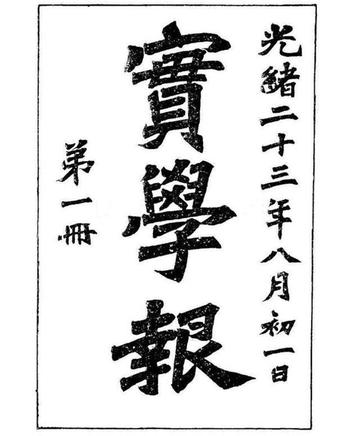 光緒二十三年八月初一日
實學報
第一冊